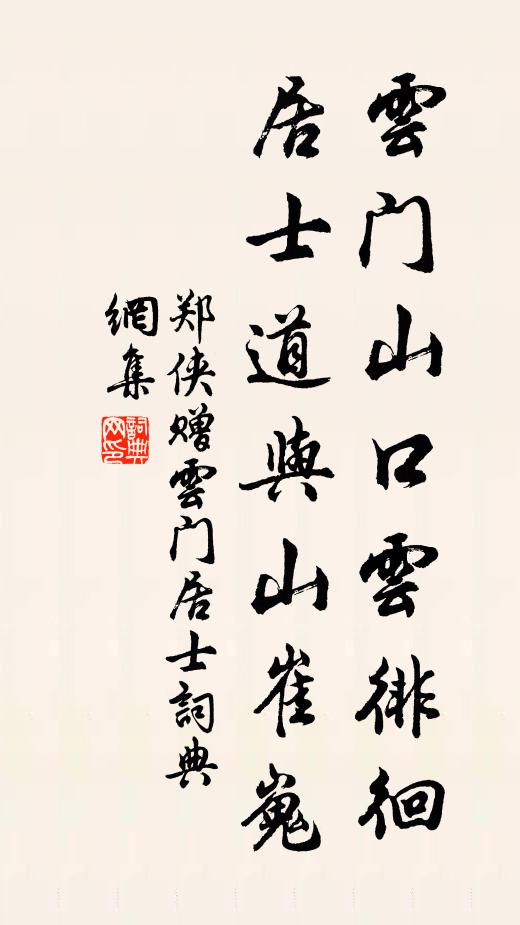 雲门山口雲徘徊
居士道與山崔嵬
郑侠赠雲门居士詞典
網集
詞典
网印